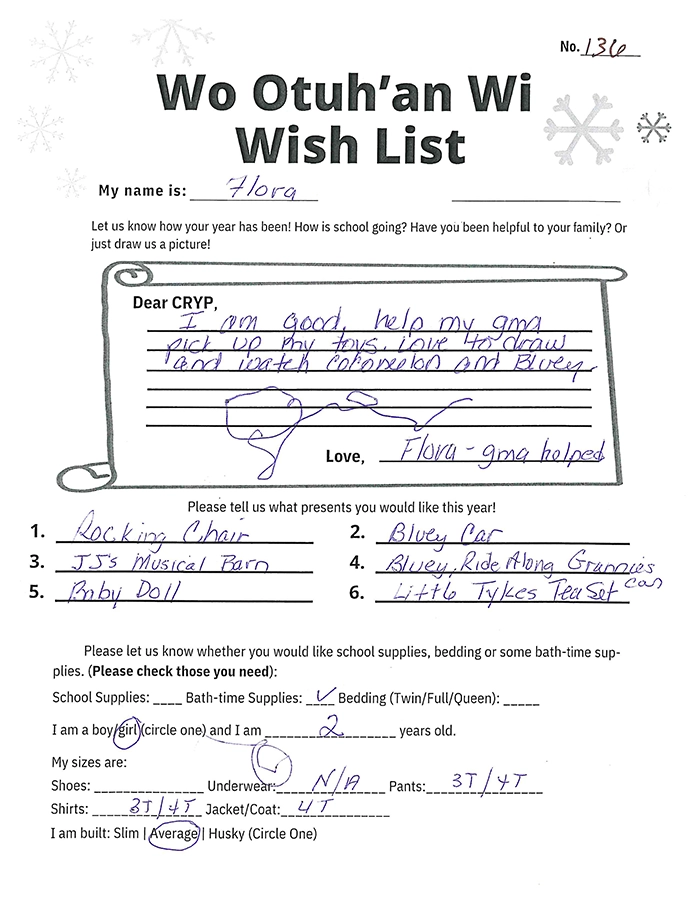 No. 136
Wo Otuh’an Wi
Wish List
My name is: Flora
Let us know how your year has been! How is school going? Have you been helpful to your family? Or
just draw us a picture!
Dear CRYP,
I am good, help my gma
pick up my toys. Love to draw
and watch cocomelon and Bluey
Love, Flora - gma helped
Please tell us what presents you would like this year!
1. Rocking Chair 2. Bluey Car
3. JJ's Musical Barn 4. Bluey, Ride Along Grannies
car
5. Baby Doll 6. Little Tykes Tea Set
Please let us know whether you would like school supplies, bedding or some bath-time sup-
plies. (Please check those you need):
School Supplies: ____ Bath-time Supplies: ✓ Bedding (Twin/Full/Queen): _____
I am a boy/girl (circle one) and I am 2 years old.
My sizes are:
Shoes: _______________ Underwear: N/A Pants: 3T/4T
Shirts: 3T/4T Jacket/Coat: 4T
I am built: Slim | Average | Husky (Circle One)